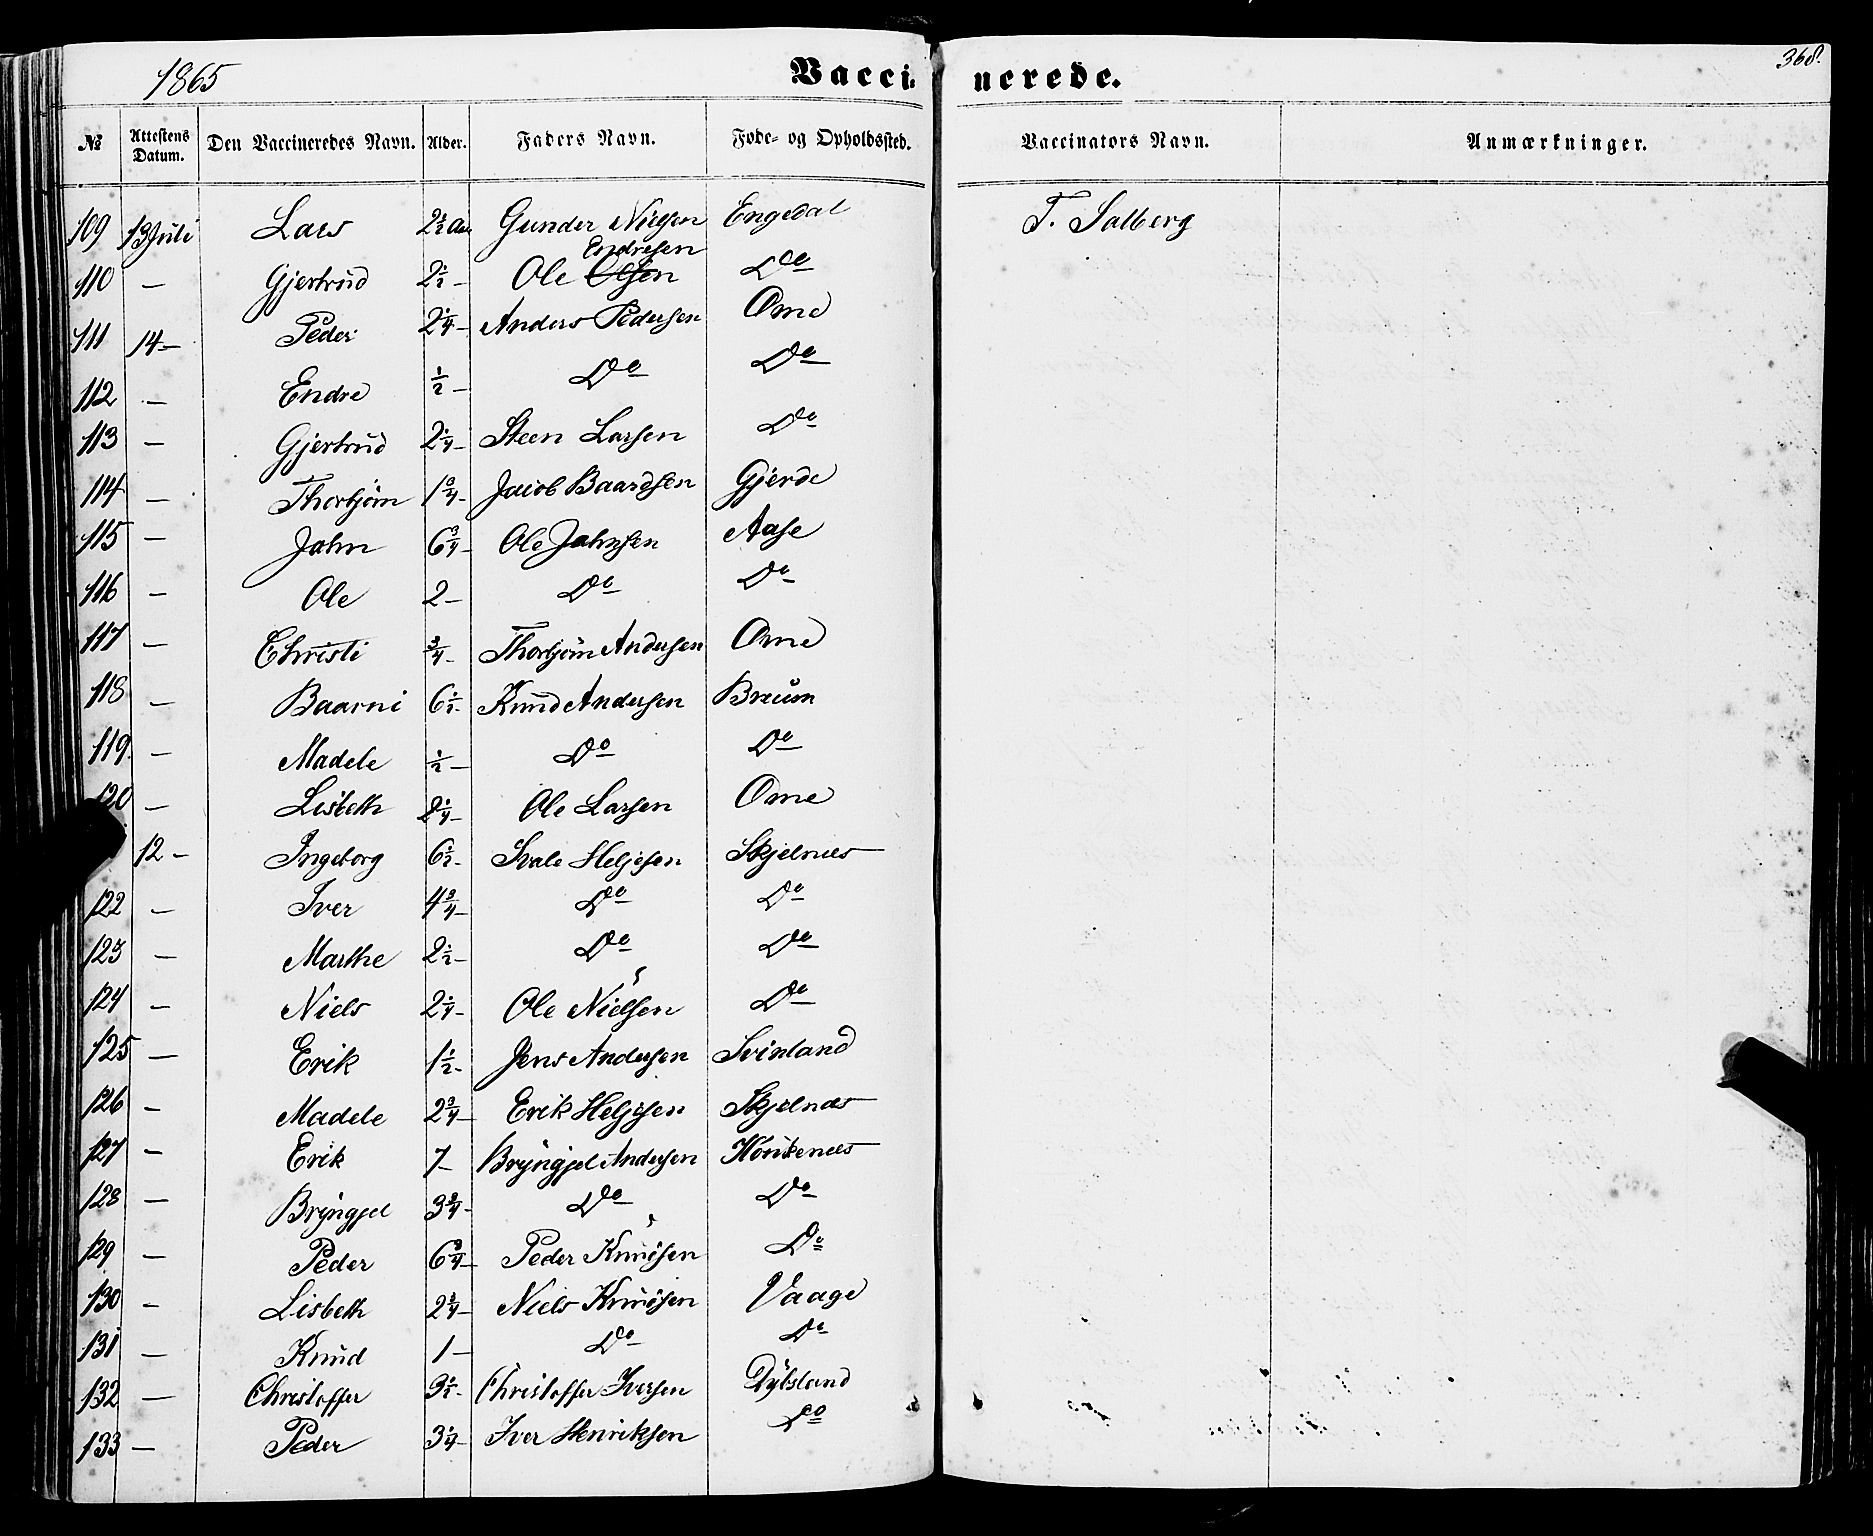 1865 Vacci- nerede. 368.
№ Attestens Datum. Den Vaccineredes Navn. Alder. Faders Navn. Føde- og Opholdssted. Vaccinators Navn. Anmærkninger.
109 13 Juli Lars 2½ Aar Gunder Nielsen Engedal T. Salberg
Endresen
110 — Gjertrud 2½ – Ole Olsen Do
111 14 – Peder 2¼ – Anders Pedersen Ome
112 — Endre ½ – Do Do
113 — Gjertrud 2¼ – Steen Larsen Do
114 — Thorbjørn 1¾ – Jacob Baardsen Gjerde
115 — John 6¾ – Ole Johnsen Aase
116 — Ole 2 – Do Do
117 — Christi ¾ – Thorbjørn Andersen Ome
118 — Baarni 6½ – Knud Andersen Breum
119 — Madele ½ – Do Do
120 — Lisbeth 2¼ – Ole Larsen Ome
12 – Ingeborg 6½ – Svale Heljesen Skjelnæs
122 — Iver 4¾ – Do Do
123 — Marthe 2½ – Do Do
124 — Niels 2¼ – Ole Nielsen Do
125 — Erik 1½ – Jens Andersen Svinland
126 — Madele 2¾ – Erik Heljesen Skjelnæs
127 — Erik 7 – Bryngjel Andersen
128 — Bryngjel 3¾ – Do Do
129 — Peder 6¾ – Peder Knudsen Do
130 — Lisbeth 2¾ – Niels Knudsen Vaage
131 — Knud 1 – Do Do
132 — Christoffer 3½ – Christoffer Iversen
133 — Peder 3¼ – Iver Henriksen Do